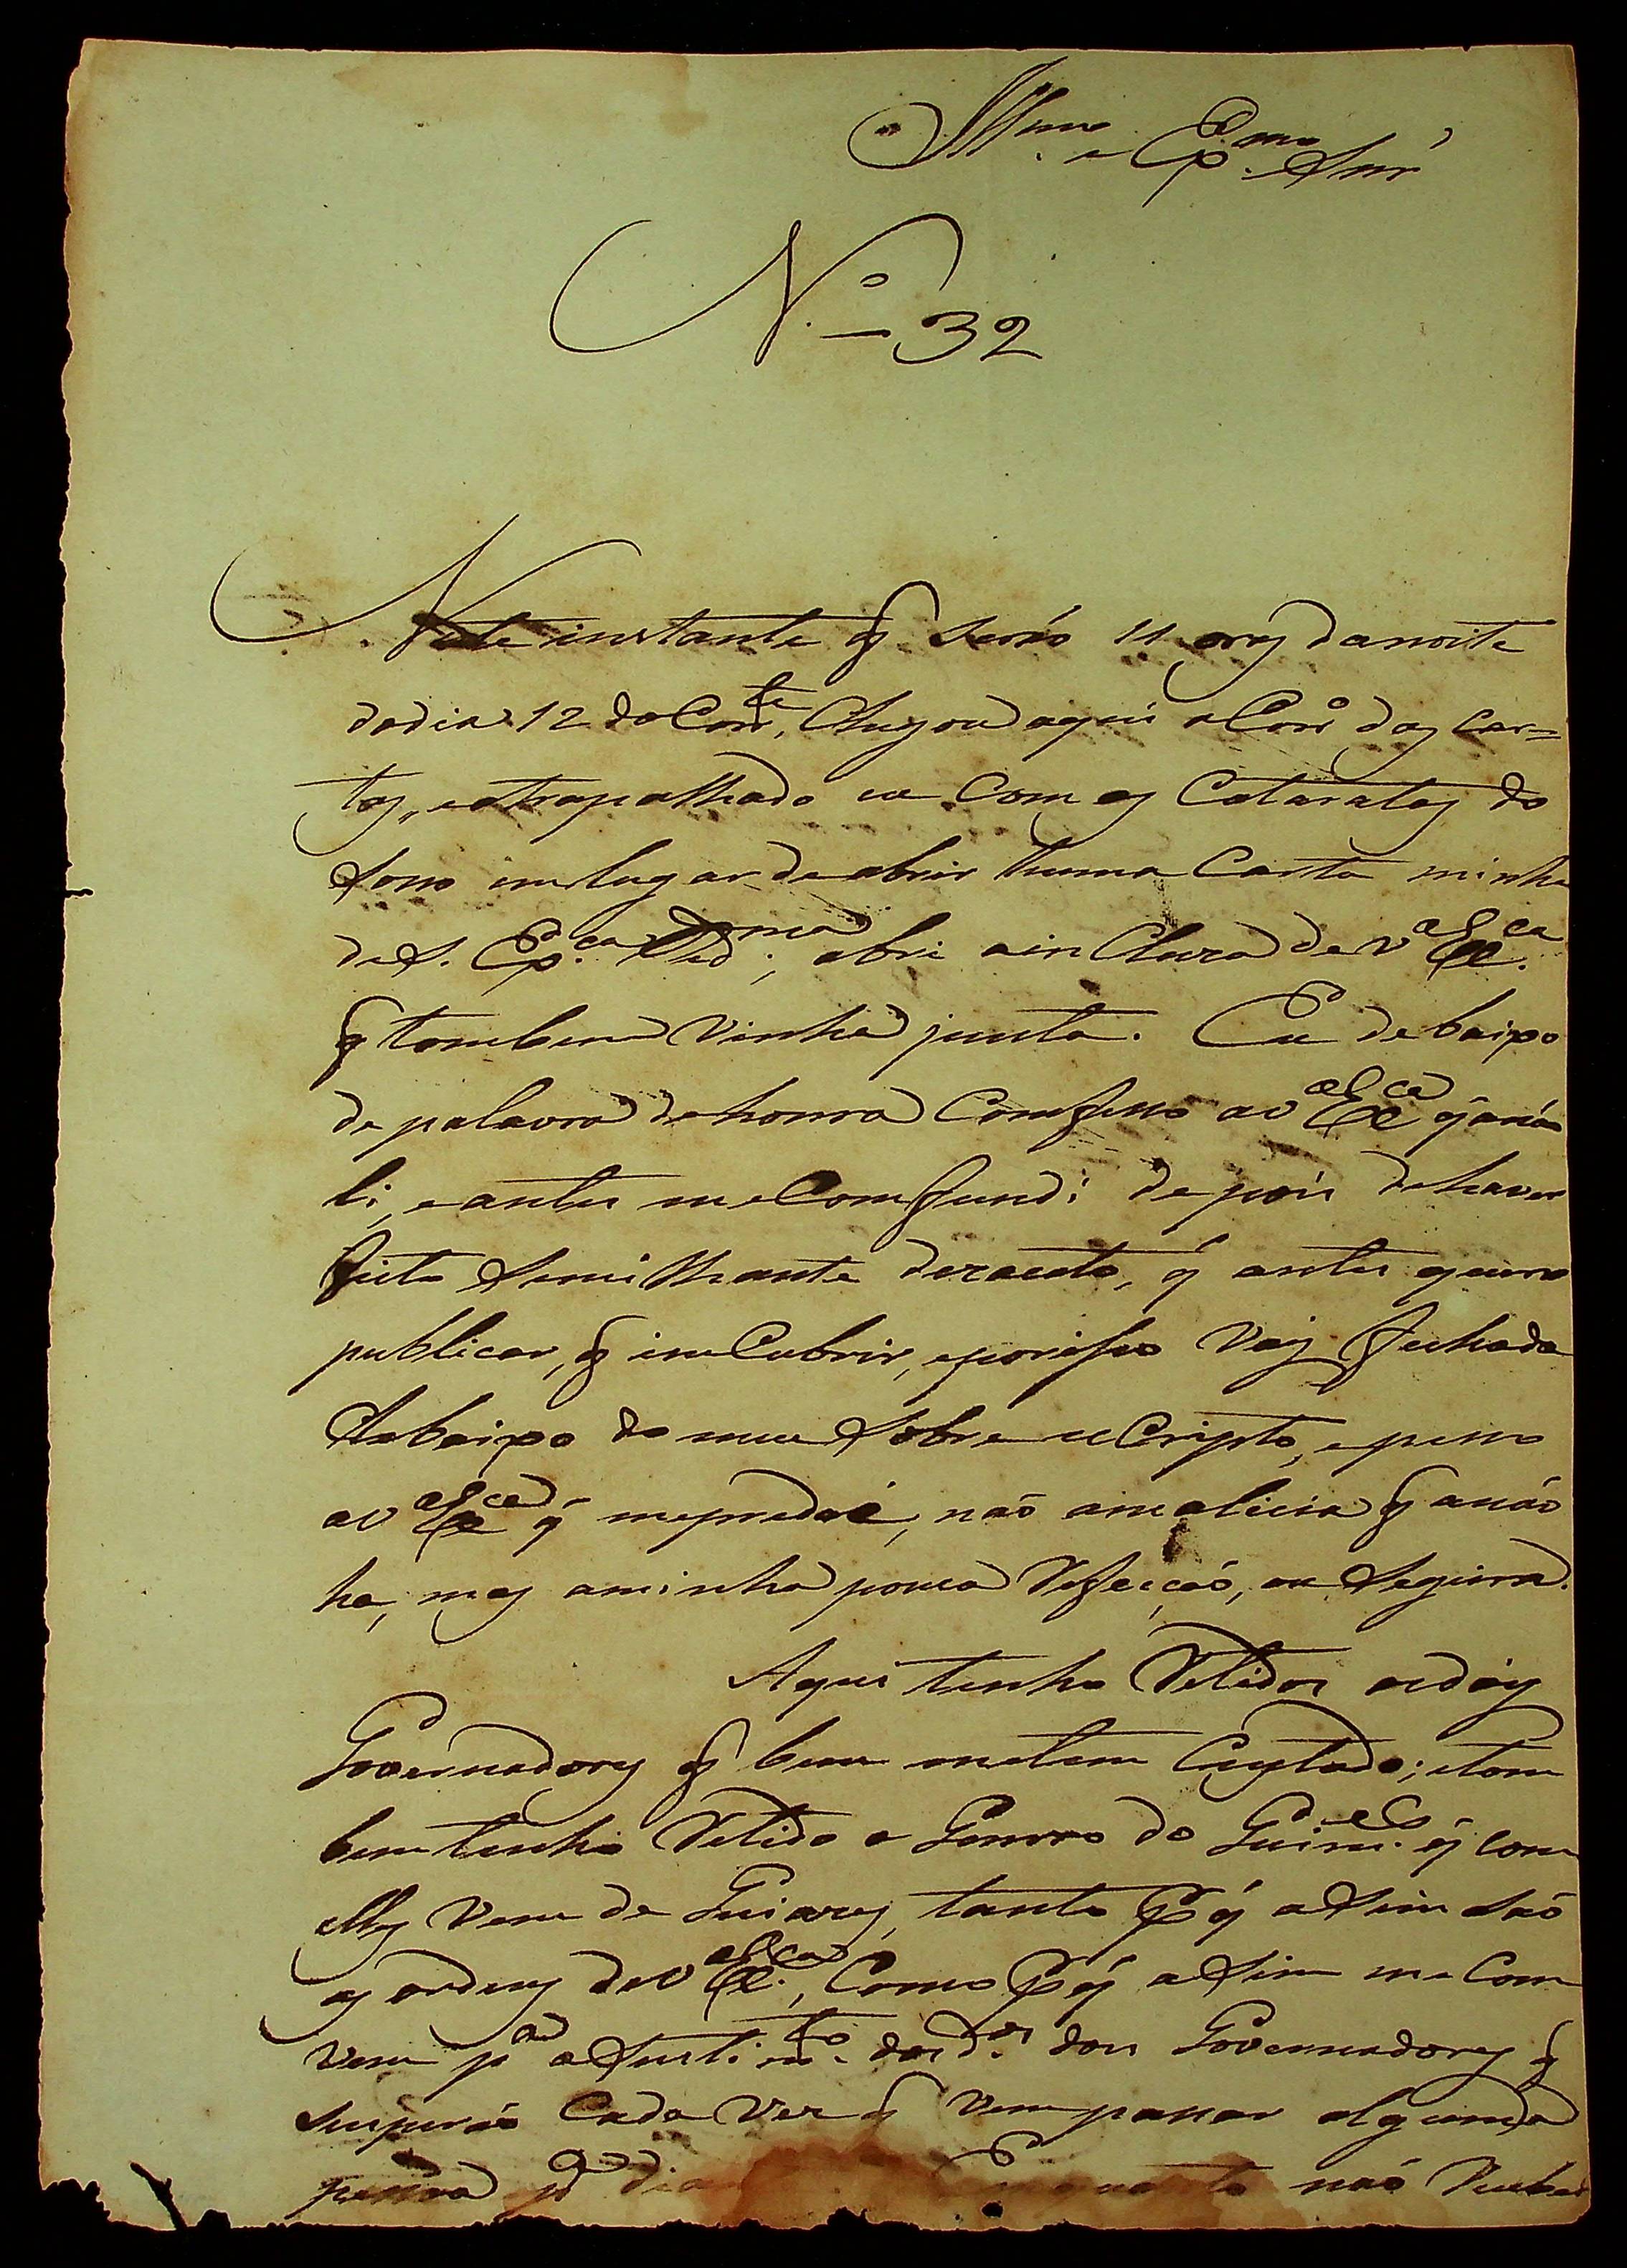 Illmo. e Exmo. Snr'
N.º 32
Neste instante q' serão 11 oras da noite
do dia 12 do Corrte., Chegou aqui o Corrº das Car=
tas, e atrapalhado eu Com as Cataratas do
Sono em lugar de abrir huma Carta minha
de S. Exca. Redma., abri a in Cluza de Vª Exca.
q' tambem vinha junta. Eu debaixo
de palavra de honra Comfesso a Vª Exca q' a não
li, e antes me Comfundi depois de haver
feito Semilhante dezacerto, q' antes quero
publicar, q' in Cubrir, e por isso vay fechada
debaixo do meu Sobre esCripto, e pesso
a Vª Exca q' me perdoe, não a malicia q' a não
ha, mas a minha pouca Refleção, ou Segueira.
Aqui tenho Retidos os dois
Governadores q' bem me tem Custado; e tam
bem tenho Retido o Genrro do Guimes. q' com
elles vem de Guiares, tanto P q' asim são
as ordens de Vª Exca., Como P q' asim me Com
vem pª o Sustimto. dos dos. dous Governadores q'
suspirão Cada vez q' vem passar alguma
pessoa pª dia Emquanto não